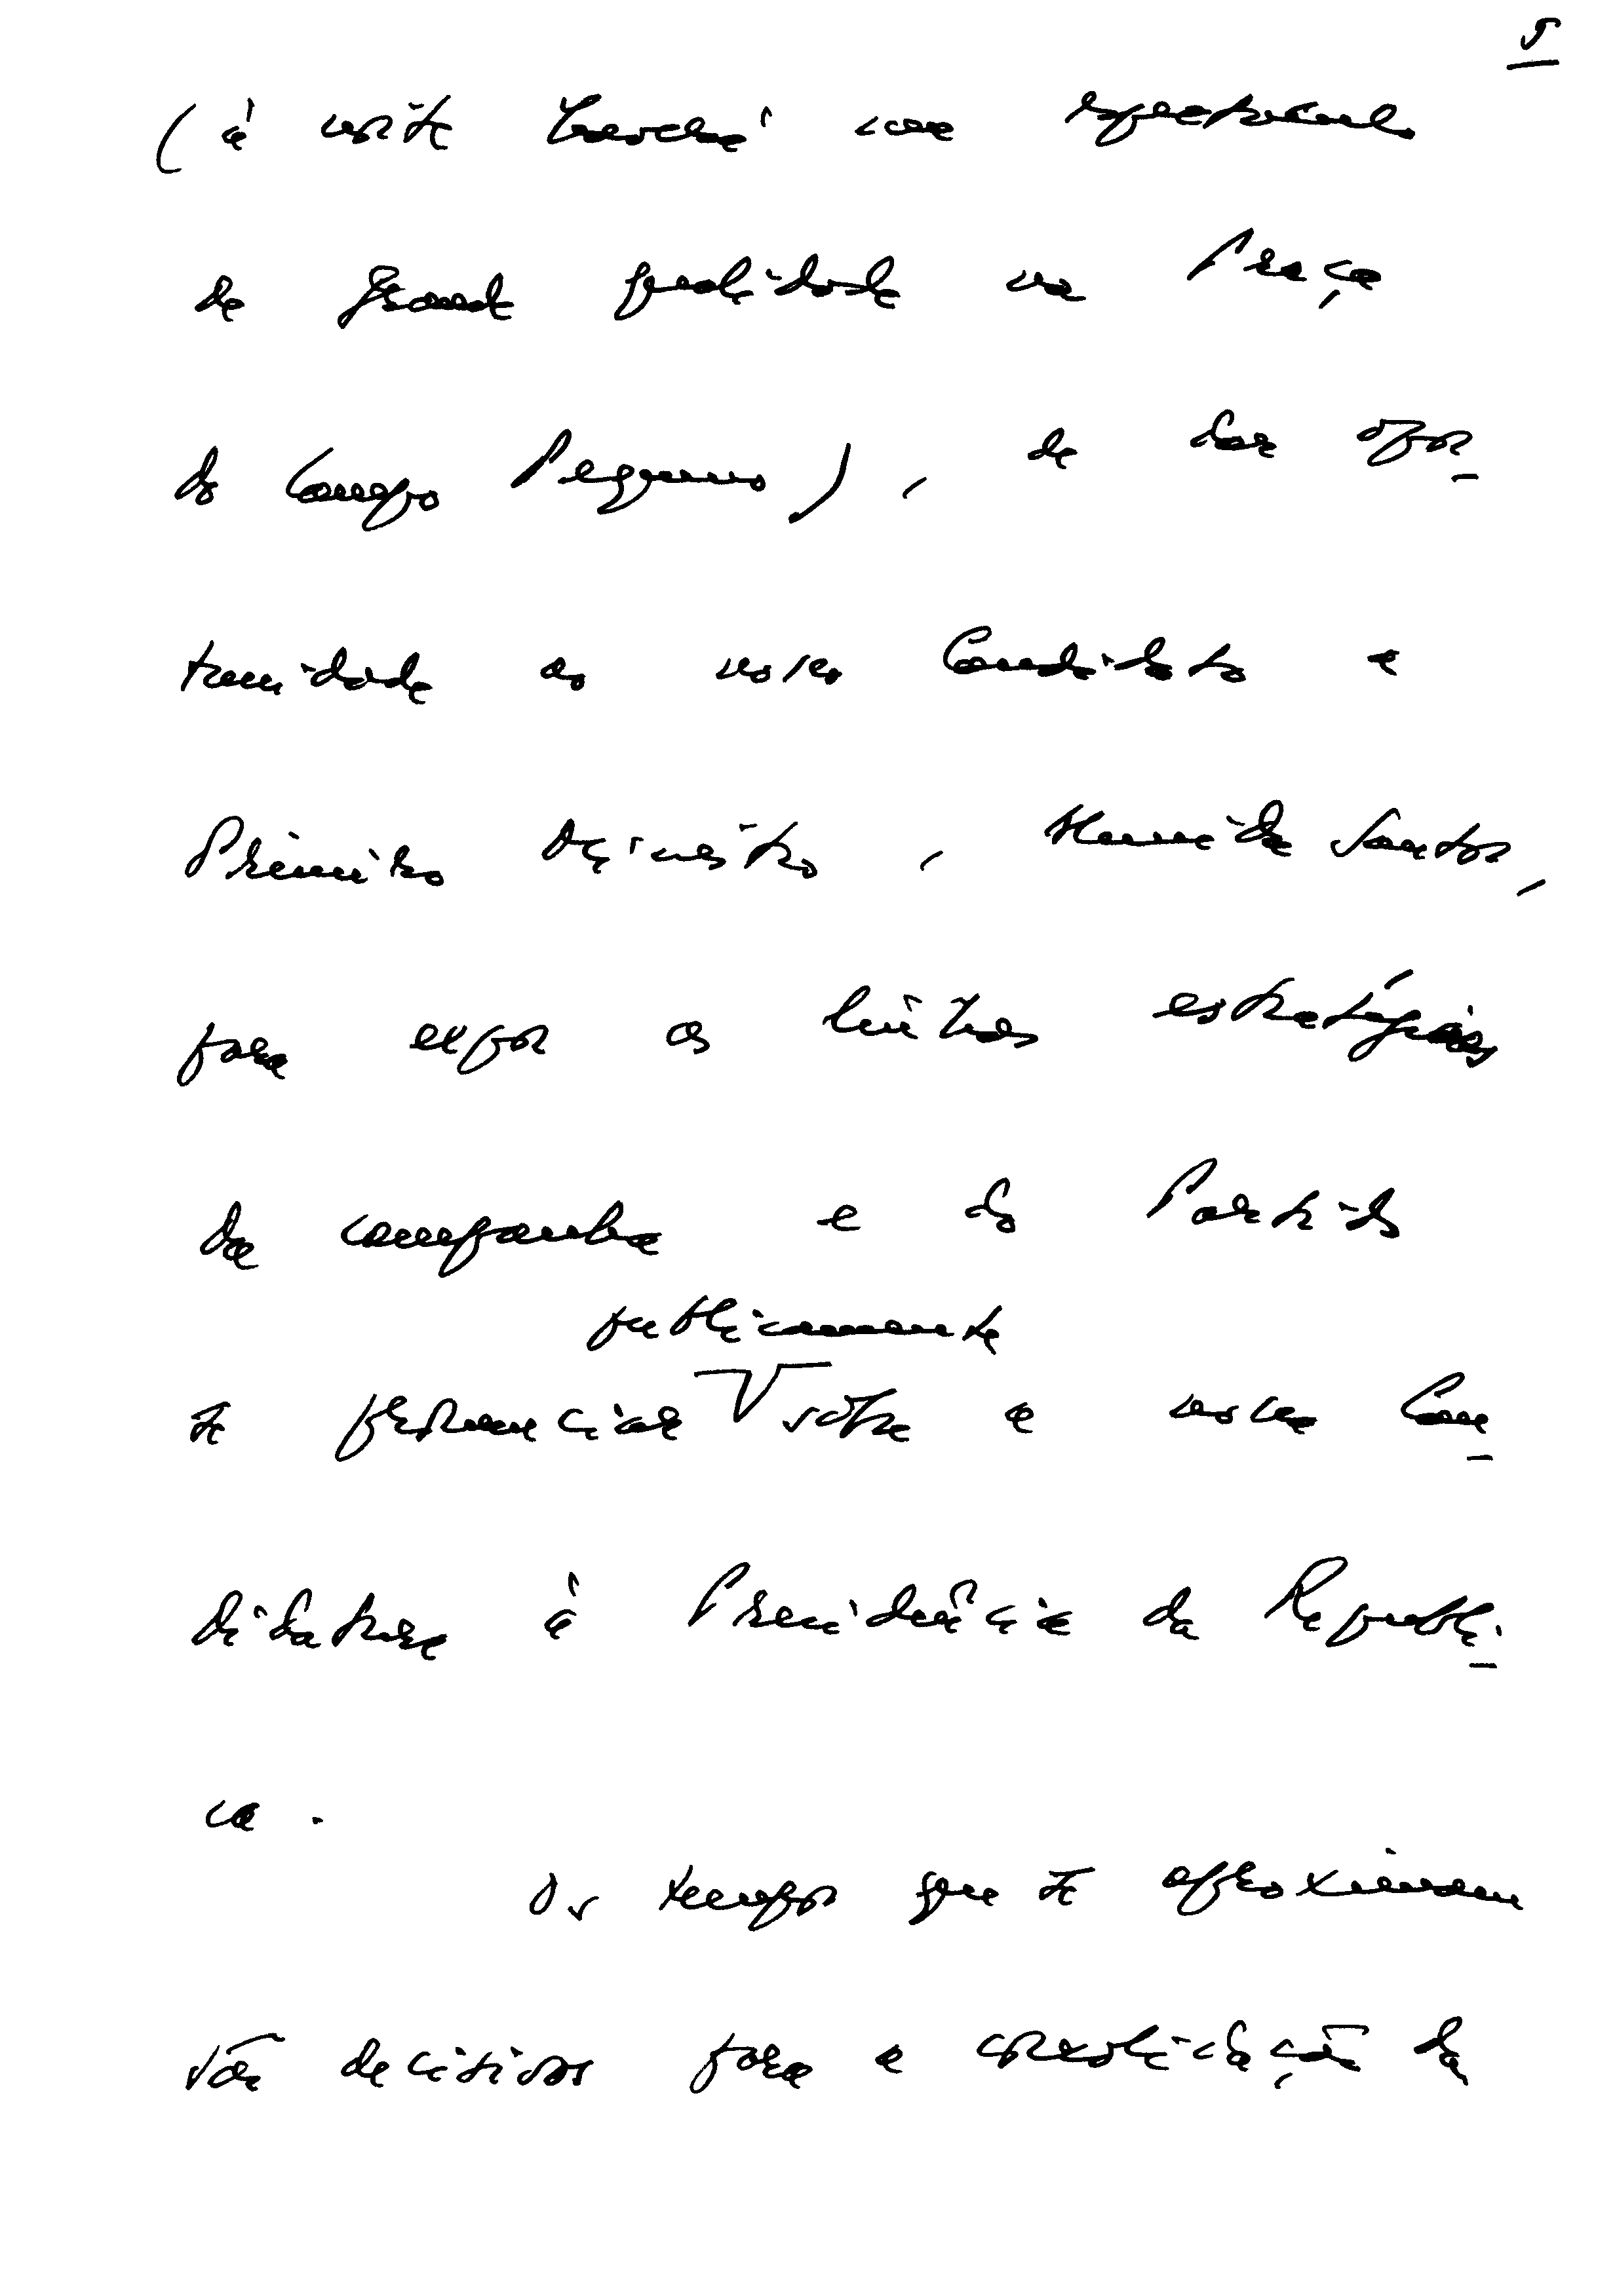 5
(à noite haverá um espectáculo
de grande qualidade na Praça
do Campo Pequeno), de dar opor-
tunidade ao nosso Candidato a
Primeiro Ministro, Almeida Santos,
para expor as linhas estratégicas
da campanha e do Partido
publicamente
se pronunciar sobre a nossa Can-
didatura à Presidência da Repúbli-
ca.
Os tempos que se aproximam
são decisivos para a consolidação da